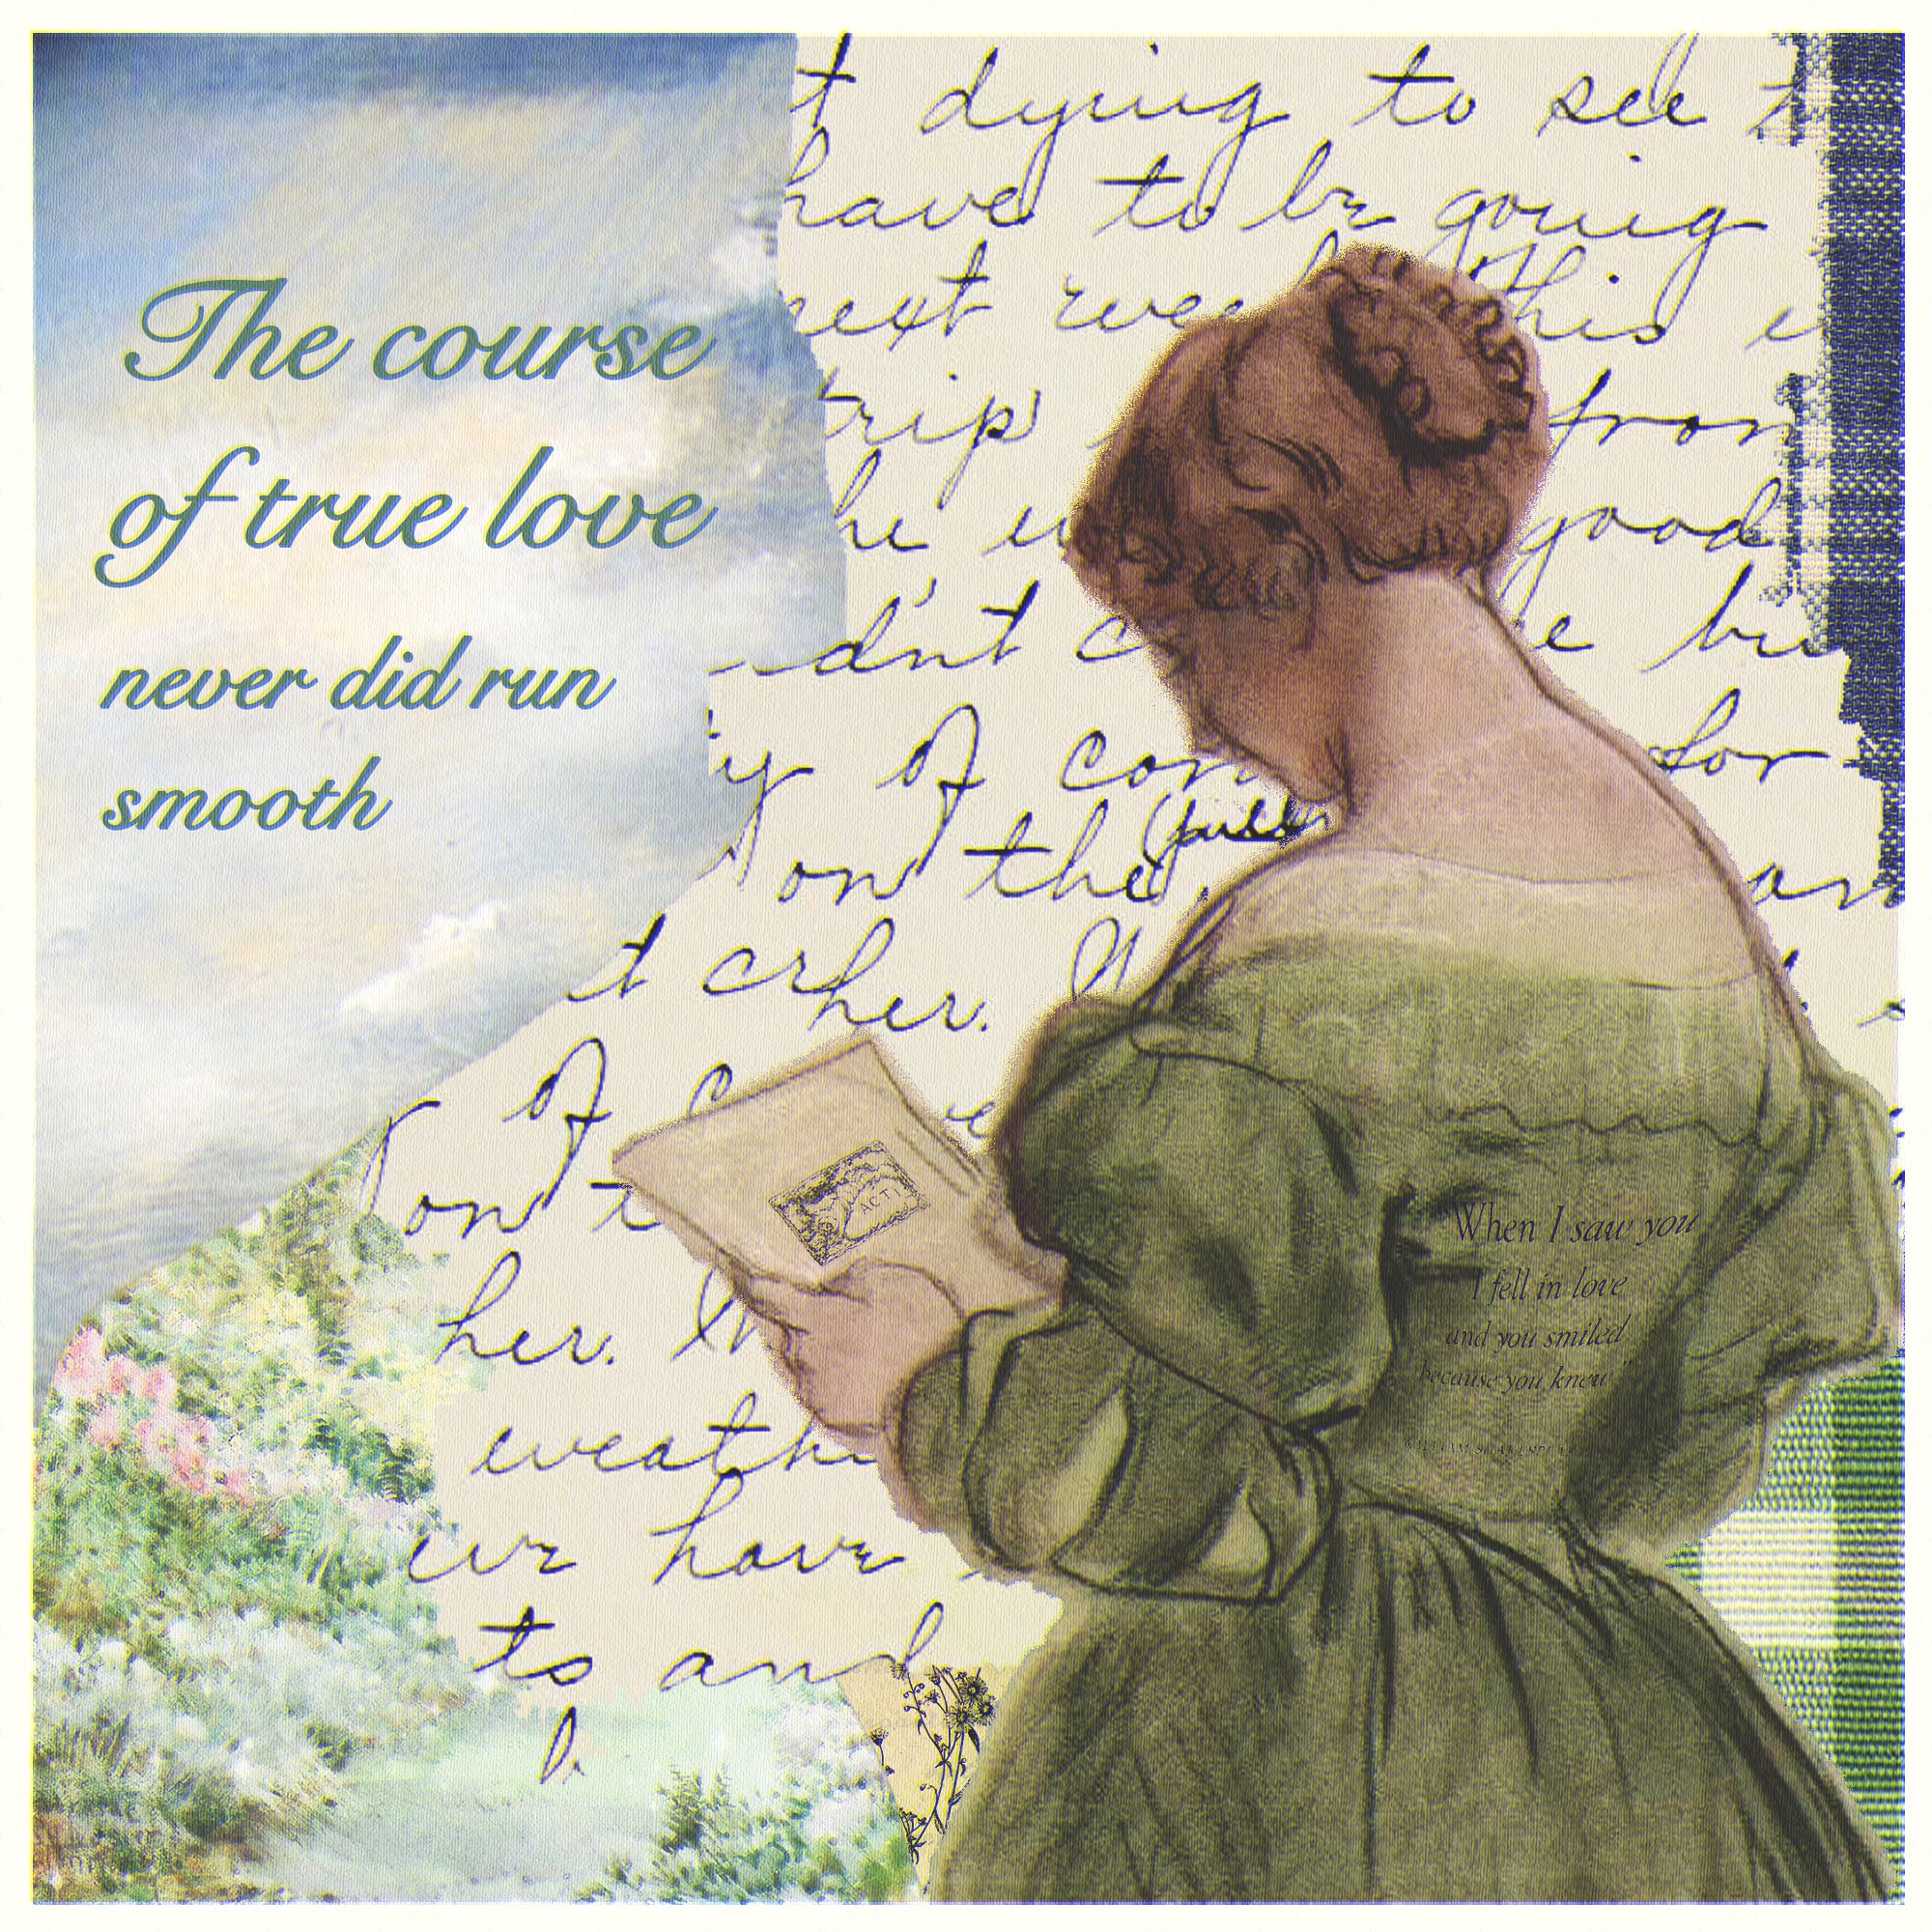 The course
of true love
never did run
smooth
t dying to see
have to be going
next this
trip from
he good
dn't
y of for
on the
t other.
of
on
her.
we have
ts and
When I saw you
I fell in love
and you smiled
because you knew"
WILLIAM SHAKESPEARE